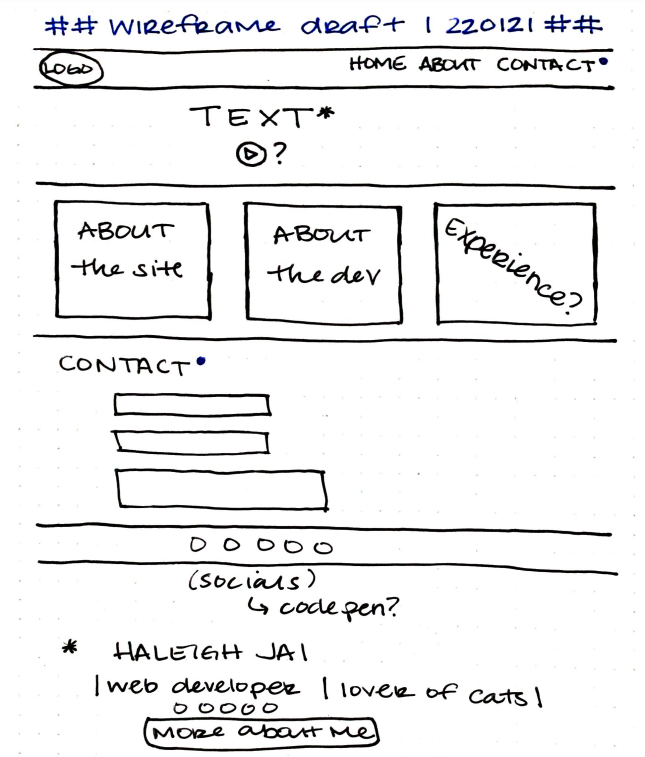 ## WIREFRAME DRAFT | 220121 ##
LOGO
HOME ABOUT CONTACT•
TEXT*
?
ABOUT
the site
ABOUT
the dev
Experience?
CONTACT•
(socials)
↳ codepen?
* HALEIGH JAI
| web developer | lover of cats |
More about Me